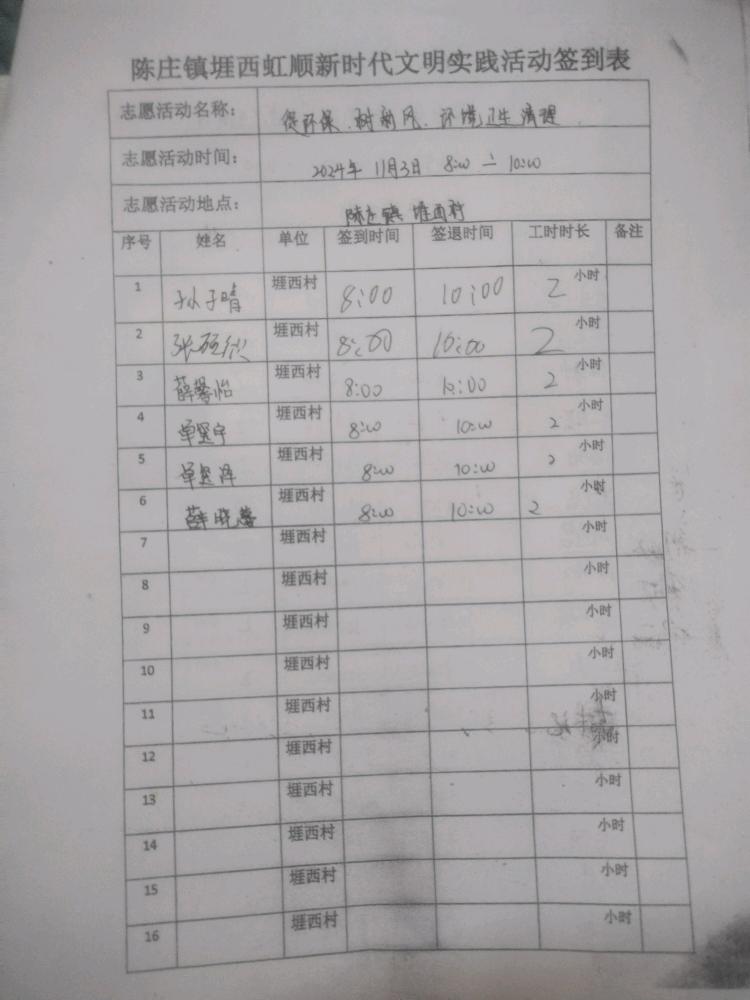 陈庄镇堐西虹顺新时代文明实践活动签到表
志愿活动名称： 促环保、树新风、环境卫生清理
志愿活动时间： 2024年 11月3日 8:00 — 10:00
志愿活动地点： 陈庄镇 堐西村
序号 姓名 单位 签到时间 签退时间 工时时长 备注
1 孙子晴 堐西村 8:00 10:00 2 小时
2 张硕欣 堐西村 8:00 10:00 2 小时
3 薛馨怡 堐西村 8:00 10:00 2 小时
4 堐西村 8:00 10:00 2 小时
5 堐西村 8:00 10:00 2 小时
6 薛晓蕊 堐西村 8:00 10:00 2 小时
7 堐西村 小时
8 堐西村 小时
9 堐西村 小时
10 堐西村 小时
11 堐西村 小时
12 堐西村 小时
13 堐西村 小时
14 堐西村 小时
15 堐西村 小时
16 堐西村 小时